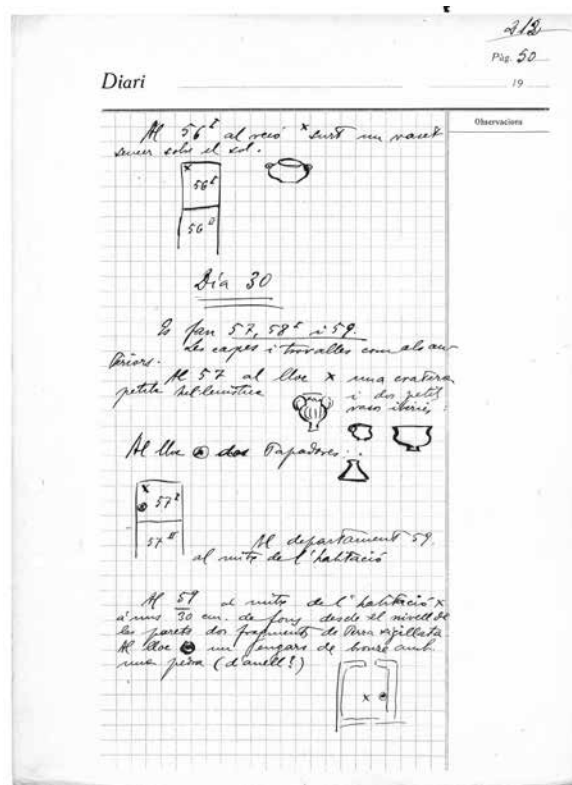 212
Pàg. 50
Diari
19
Observacions
Al 56 I al recó x surt un vaset
sencer sobre el sol.
x
56 I
56 II
Dia 30
Es fan 57, 58 I i 59.
Les capes i trovalles com als an
teriors.
Al 57 al lloc x una cratera
petita hel·lenística
i dos petits
vasos ibèrics:
Al lloc dos Tapadores:
x
57 I
57 II
Al departament 59.
al mitx de l'habitació
Al 59 al mitx de l'habitació x
á uns 30 cm. de fons desde el nivell de
les parets dos fragments de Terra sigillata
Al lloc un engars de bronze amb
una pedra (d'anell?)
x